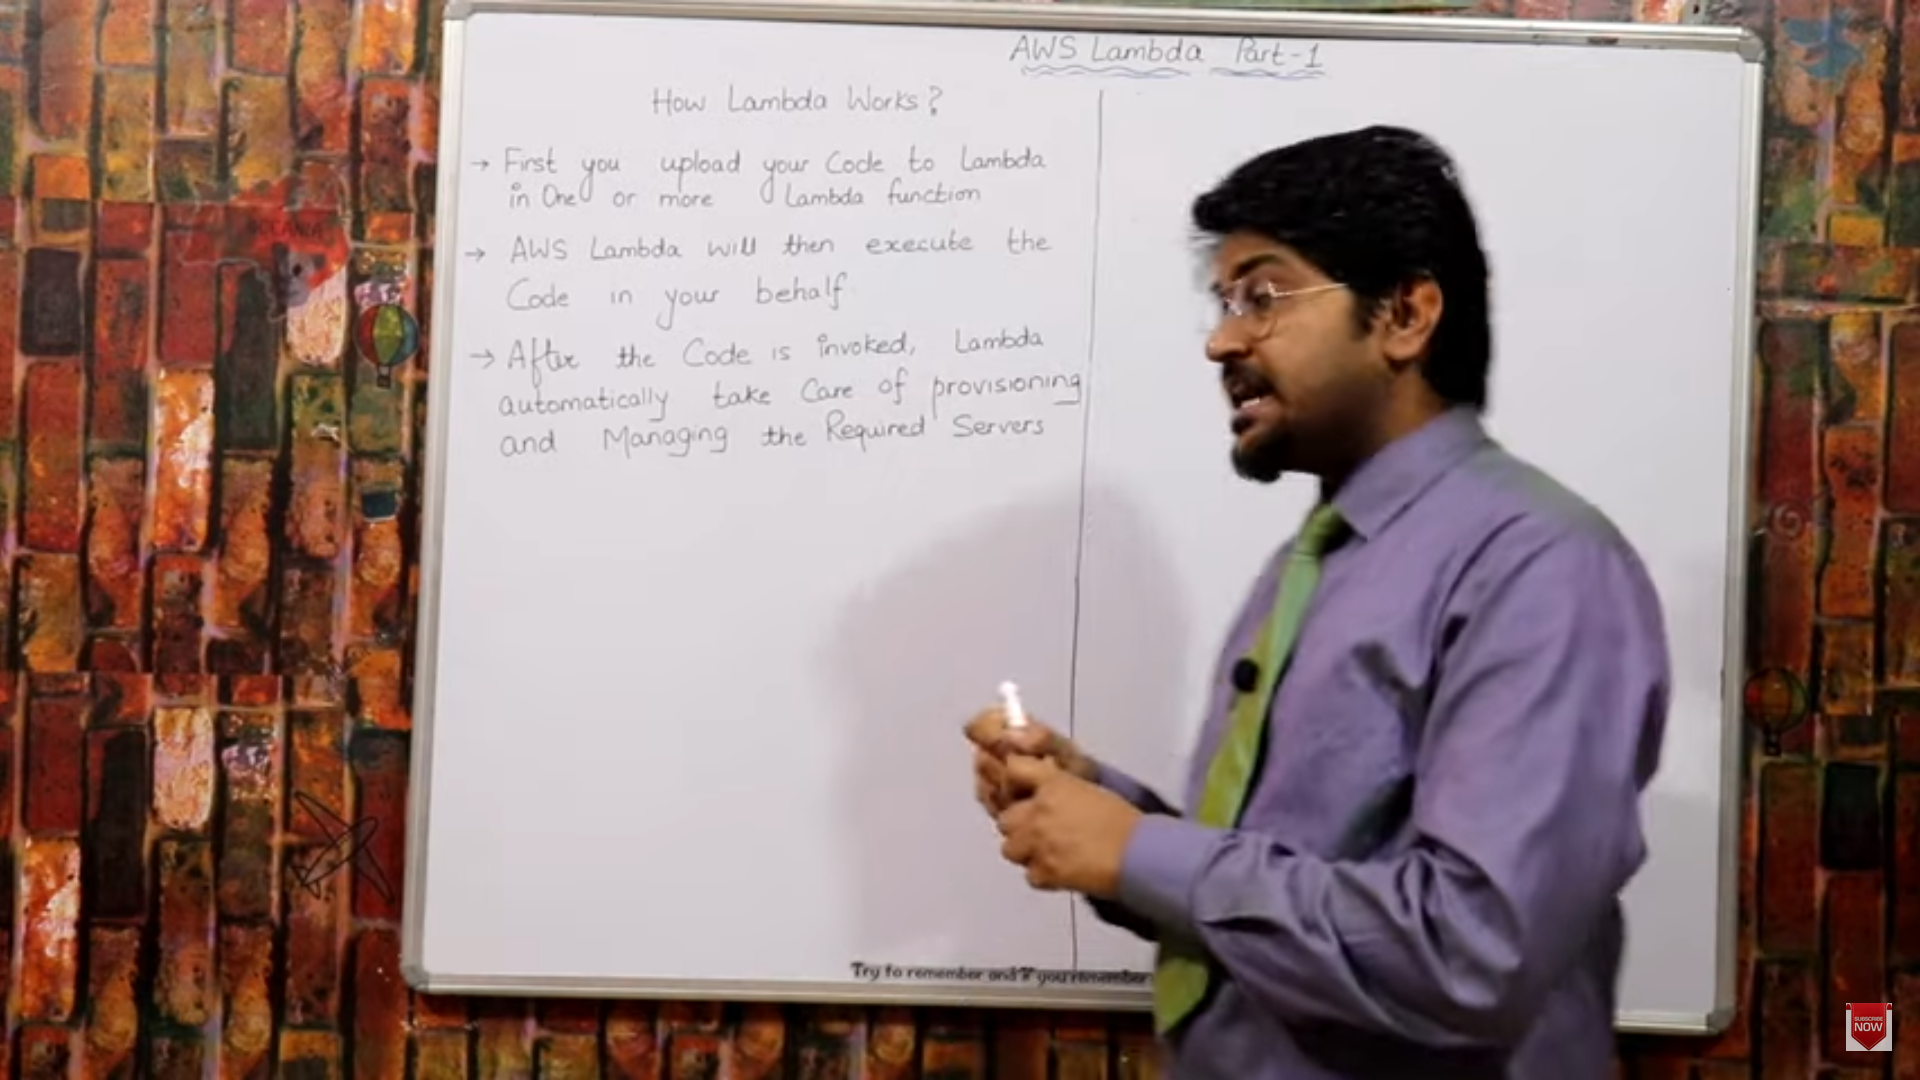 AWS Lambda Part-1
How Lambda Works?
→ First you upload your Code to Lambda
in One or more Lambda function
→ AWS Lambda will then execute the
Code in your behalf
→ After the Code is invoked, Lambda
automatically take Care of provisioning
and Managing the Required Servers
Try to remember and if you remember
OCEANIA
SUBSCRIBE
NOW